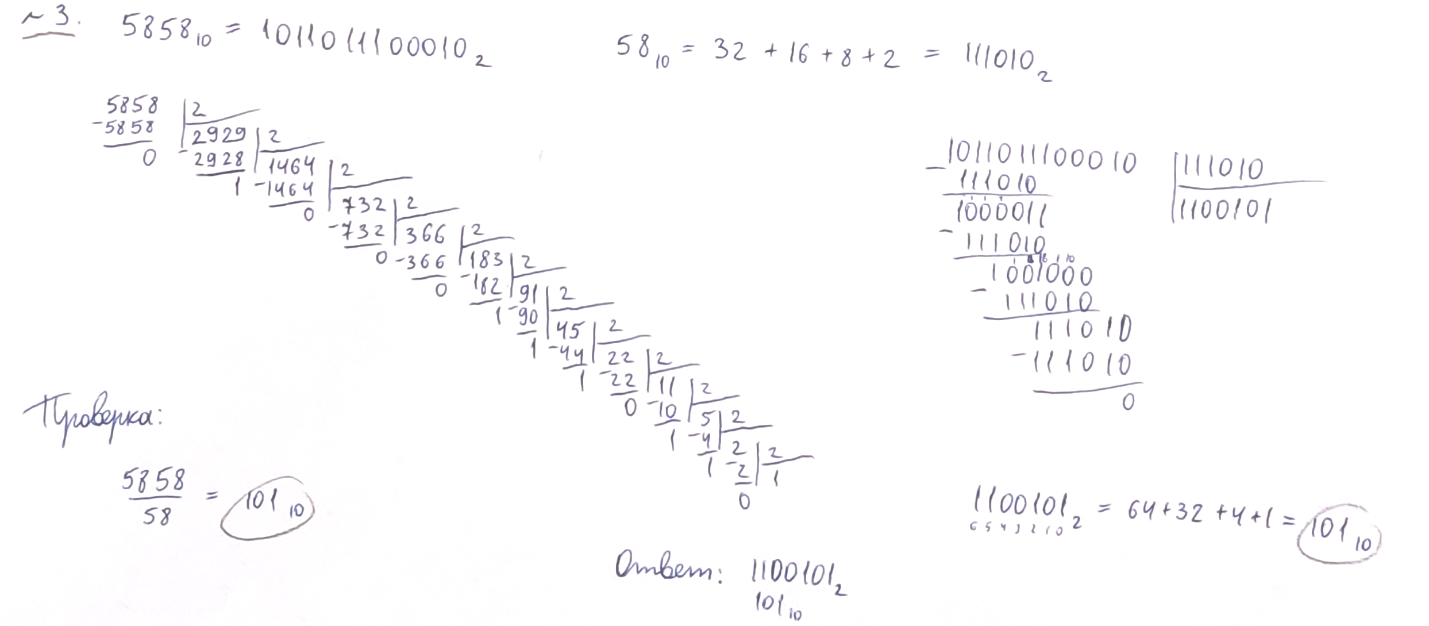 № 3. 5858₁₀ = 1011011100010₂ 58₁₀ = 32 + 16 + 8 + 2 = 111010₂
5858 | 2
-5858 | 2929 | 2
0 - 2928 | 1464 | 2
1 -1464 | 732 | 2
0 -732 | 366 | 2
0 -366 | 183 | 2
0 -182 | 91 | 2
1 -90 | 45 | 2
1 -44 | 22 | 2
1 -22 | 11 | 2
0 -10 | 5 | 2
1 -4 | 2 | 2
1 -2 | 1
0
1011011100010 | 111010
- 111010 | 1100101
1000011
- 111010
1001000
- 111010
111010
-111010
0
Проверка:
5858
58
= 101₁₀
1100101₂ = 64+32+4+1 = 101₁₀
6 5 4 3 2 1 0
Ответ: 1100101₂
101₁₀